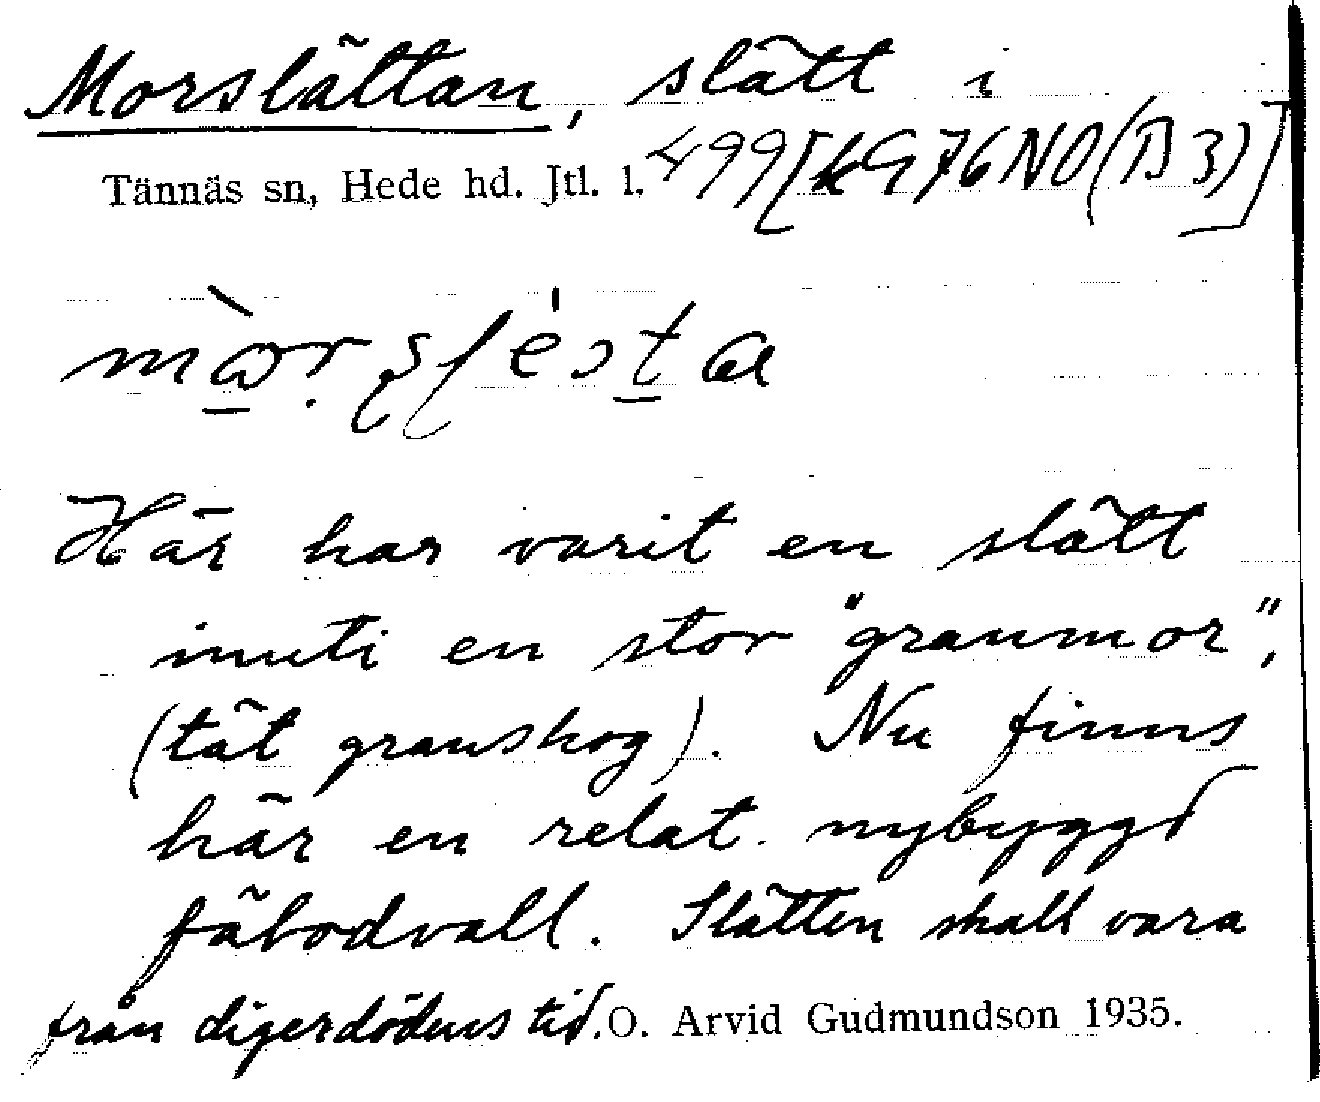 Morslättan, slätt i
Tännäs sn, Hede hd. Jtl. l. 499[KG76NO(B3)]
Här har varit en slätt
inuti en stor "granmor",
(tät granskog). Nu finns
här en relat. nybyggd
fäbodvall. Slätten skall vara
från digerdödens tid. O. Arvid Gudmundson 1935.